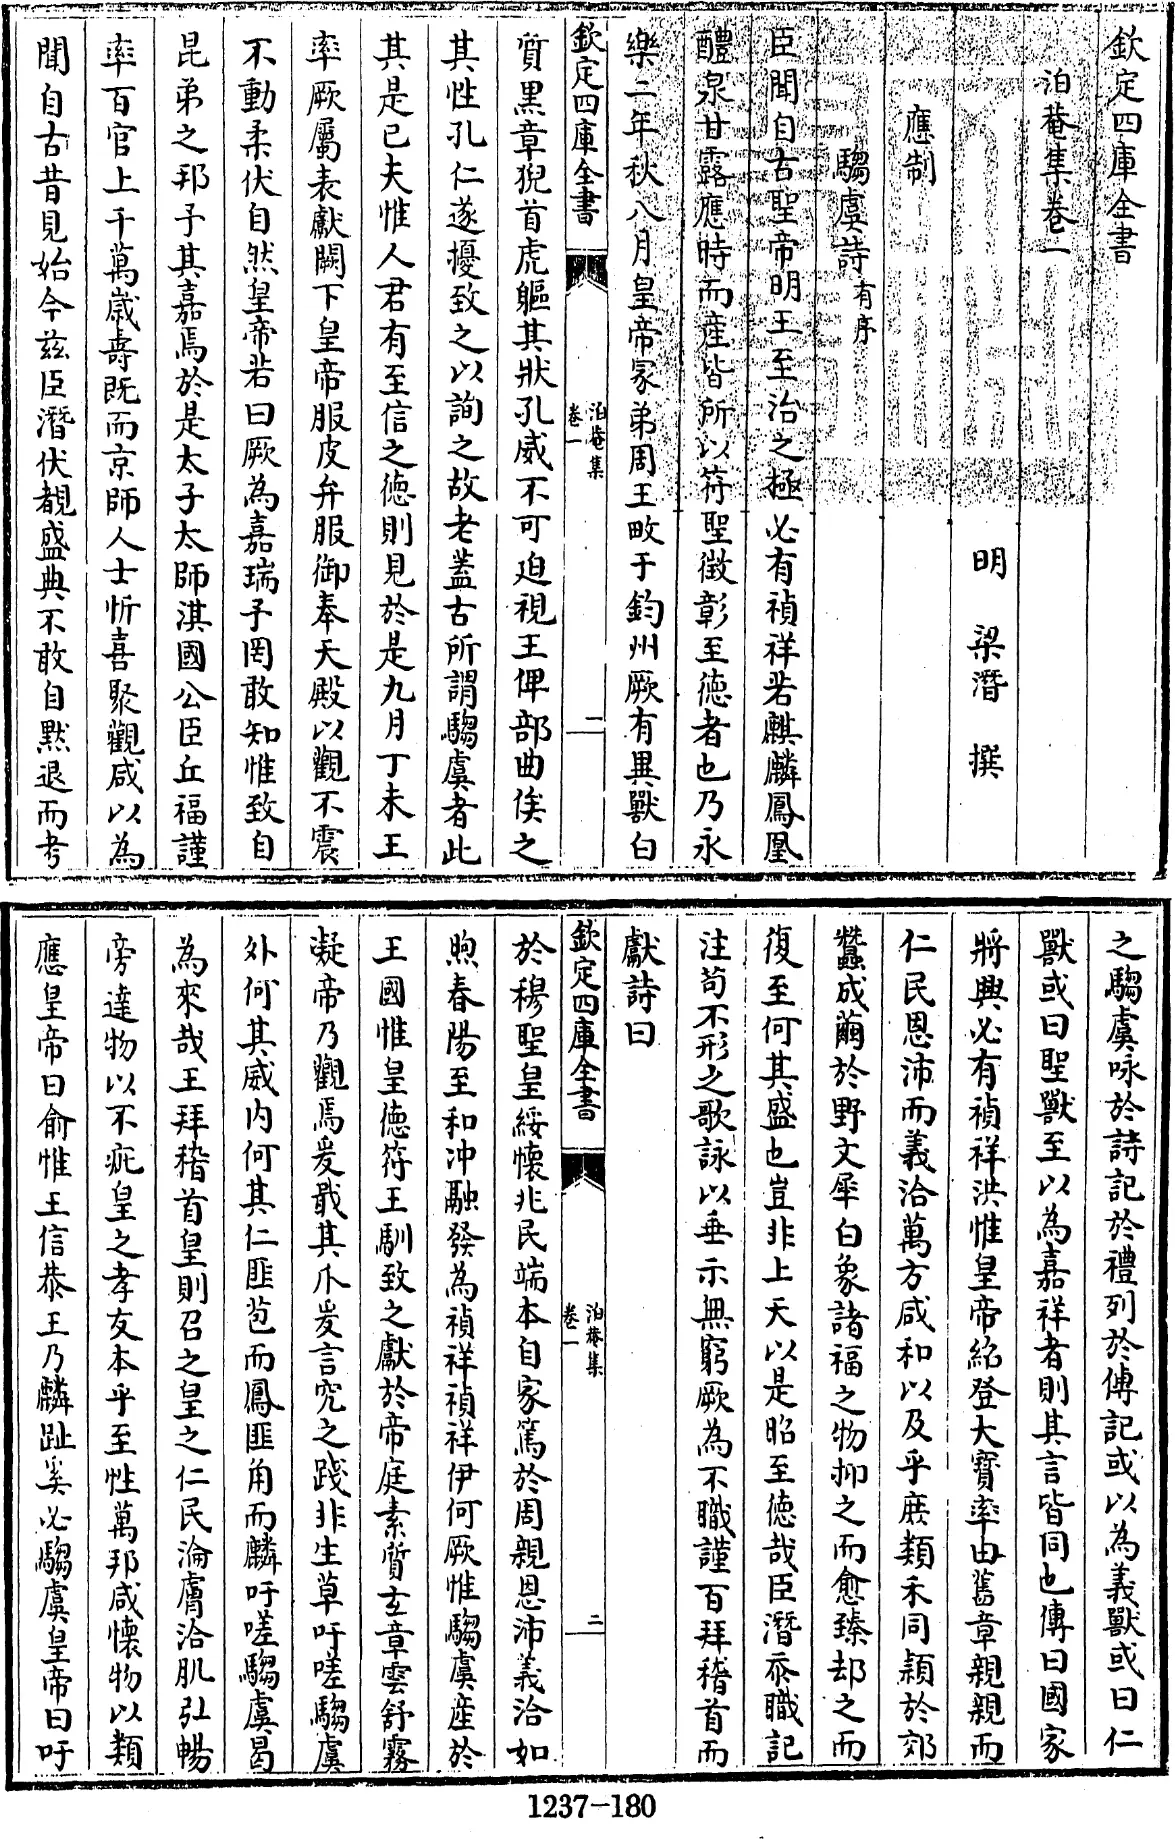 欽定四庫全書
泊菴集卷一
明 梁潛 撰
應制
騶虞詩有序
臣聞自古聖帝明王至治之極必有禎祥若麒麟鳳凰
醴泉甘露應時而產皆所以符聖徴彰至德者也乃永
樂二年秋八月皇帝冡弟周王畋于鈞州厥有異獸白
欽定四庫全書
泊菴集
卷一
一
質黑章猊首虎軀其狀孔威不可迫視王俾部曲俟之
其性孔仁遂擾致之以詢之故老蓋古所謂騶虞者此
其是已夫惟人君有至信之德則見於是九月丁未王
率厥屬表獻闕下皇帝服皮弁服御奉天殿以觀不震
不動柔伏自然皇帝若曰厥為嘉瑞予罔敢知惟致自
昆弟之邦予其嘉焉於是太子太師淇國公臣丘福謹
率百官上千萬歲壽既而京師人士忻喜聚觀咸以為
聞自古昔見始今兹臣潛伏覩盛典不敢自黙退而考
之騶虞咏於詩記於禮列於傳記或以為義獸或曰仁
獸或曰聖獸至以為嘉祥者則其言皆同也傳曰國家
將興必有禎祥洪惟皇帝紹登大寶率由舊章親親而
仁民恩沛而義洽萬方咸和以及乎庶類禾同穎於郊
蠶成繭於野文犀白象諸福之物抑之而愈臻却之而
復至何其盛也豈非上天以是昭至德哉臣潛忝職記
注苟不形之歌詠以垂示無窮厥為不職謹百拜稽首而
獻詩曰
欽定四庫全書
泊菴集
卷一
二
於穆聖皇綏懷兆民端本自家篤於周親恩沛義洽如
煦春陽至和冲融發為禎祥禎祥伊何厥惟騶虞產於
王國惟皇德符王馴致之獻於帝庭素質玄章雲舒霧
凝帝乃觀焉爰戢其爪爰言究之踐非生草吁嗟騶虞
外何其威内何其仁匪苞而鳳匪角而麟吁嗟騶虞曷
為來哉王拜稽首皇則召之皇之仁民淪膚洽肌引暢
旁達物以不疵皇之孝友本乎至性萬邦咸懷物以類
應皇帝曰俞惟王信恭王乃麟趾奚必騶虞皇帝曰吁
1237-180